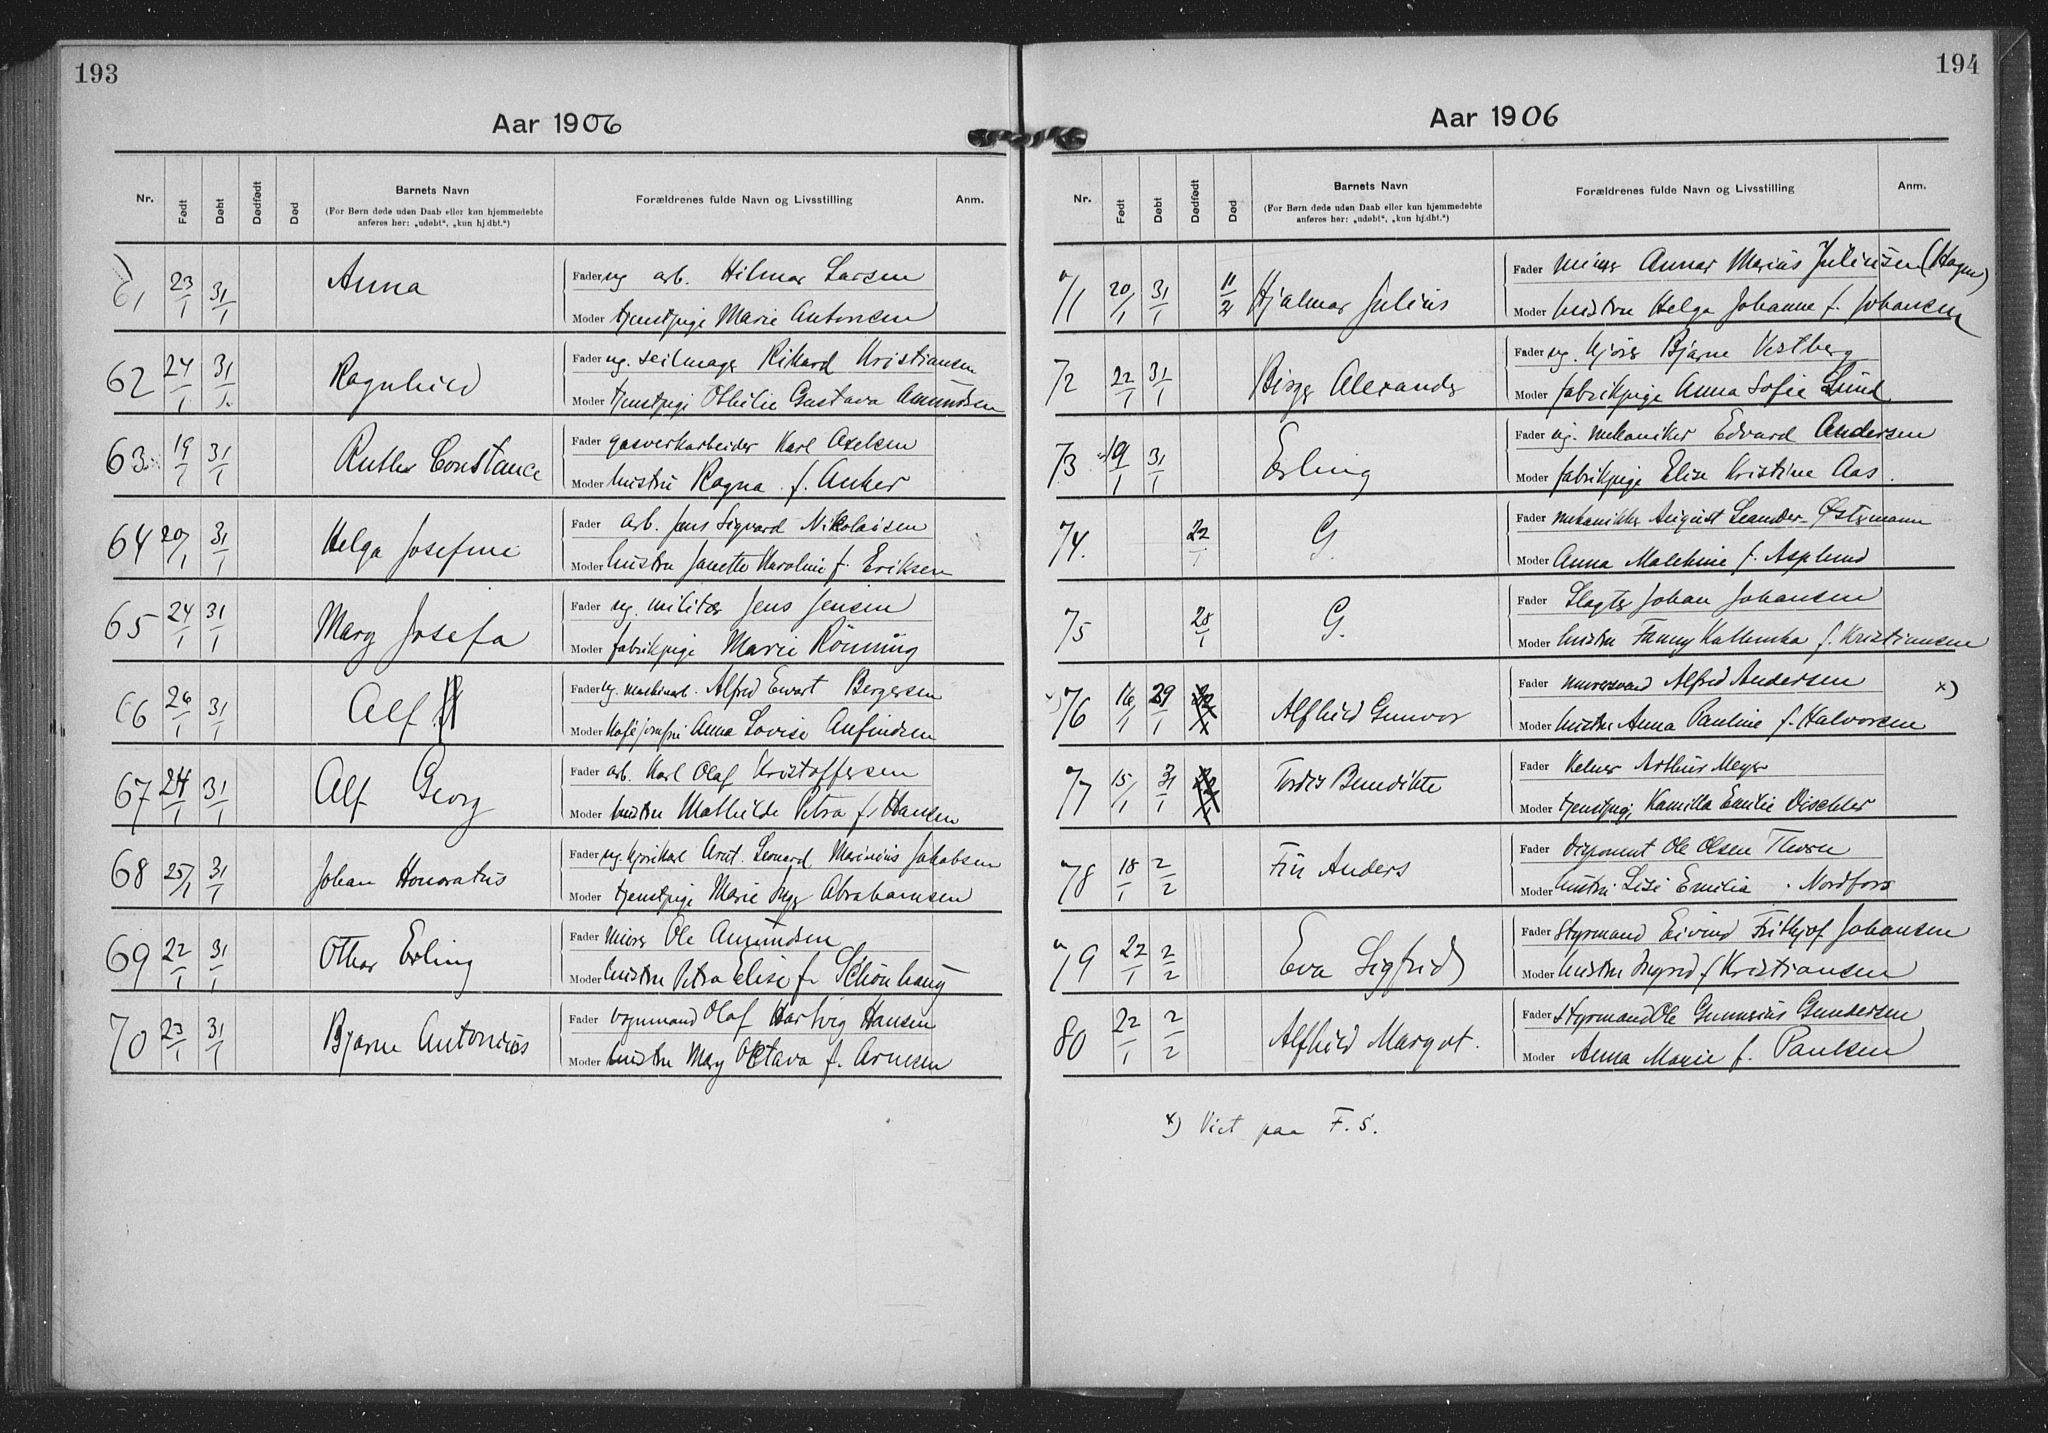 193
Aar 1906
Nr. Født Døbt Dødfødt Død Barnets Navn Forældrenes fulde Navn og Livsstilling Anm.
(For Børn døde uden Daab eller kun hjemmedøbte
anføres her: „udøbt“, „kun hj.dbt.“)
61 23/1 31/1 Anna Fader ug arb. Hilmar Larsen
Moder tjenstpige Marie Antonsen
62 24/1 31/1 Ragnhild Fader ug. seilmager Rikard Kristiansen
Moder tjenstpige Othilie Gustava Amundsen
63 19/1 31/1 Ruth Constance Fader gasverkarbeider Karl Axelsen
Moder hustru Ragna f. Anker
64 20/1 31/1 Helga Josefine Fader arb. Jens Sigvard Nikolaisen
Moder hustru Janette Karoline f. Eriksen
65 24/1 31/1 Mary Josefa Fader ug. militær Jens Jensen
Moder fabrikpige Marie Rönning
66 26/1 31/1 Alf Fader ug. maskinarb. Alfred Ewart Bergersen
Moder Anna Lovise Anfindsen
67 24/1 31/1 Alf Georg Fader arb. Karl Olaf Kristoffersen
Moder hustru Mathilde Petra f. Hansen
68 25/1 31/1 Johan Honoratus Fader ug. kjørekarl Arnt. Leonard Marinius Jakobsen
Moder tjenstpige Marie Inger Abrahamsen
69 22/1 31/1 Othar Erling Fader murer Ole Amundsen
Moder hustru Petra Elise f. Schönhaug
70 23/1 31/1 Bjarne Antonius Fader vognmand Olaf Hartvig Hansen
Moder hustru Mary Octava f. Arnesen
194
Aar 1906
Nr. Født Døbt Dødfødt Død Barnets Navn Forældrenes fulde Navn og Livsstilling Anm.
(For Børn døde uden Daab eller kun hjemmedøbte
anføres her: „udøbt“, „kun hj.dbt.“)
71 20/1 31/1 11/2 Hjalmar Julius Fader murer Annar Marius Juliusen (Hagen)
Moder hustru Helga Johanne f. Johansen
72 22/1 31/1 Birger Alexander Fader ug. kjører Bjarne Vestberg
Moder fabrikpige Anna Sofie Lund
73 19/1 31/1 Erling Fader ug. mekaniker Edvard Andersen
Moder fabrikpige Elise Kristine Aas.
74. 22/1 G. Fader mekaniker August Leander Østermann
Moder Anna f. Asplund
75 G. Fader Slagter Johan Johansen
Moder hustru Fanny f. Kristiansen
76 16/1 29/1 Alfhild Gunvor Fader murersvend Alfred Andersen x)
Moder hustru Anna Pauline f. Halvorsen
77 15/1 31/1 Tordis Benedikte Fader Kelner Arthur Meyer
Moder tjenstpige Kamilla Emilie Dischler
78 18/1 2/2 Anders Fader Disponent Ole Olsen
Moder hustru Emilia
79 22/1 2/2 Eva Sigfrid Fader Styrmand Eivind Frithjof Johansen
Moder hustru Ingrid f. Kristiansen
80 22/1 2/2 Alfhild Margot. Fader styrmand Ole Gunnerius Gundersen
Moder Anna Marie f. Paulsen
x) Viet paa F. S.